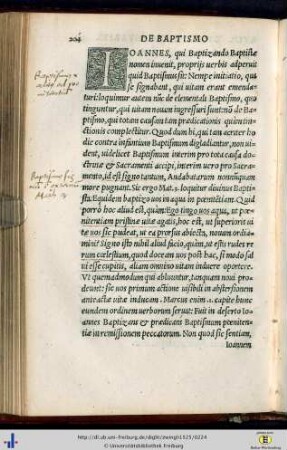 204 DE BAPTISMO
IOANNES, qui Baptizando Baptistæ
nomen inuenit, proprijs uerbis aperuit
quid Baptismus sit: Nempe initiatio, qua
se signabant, qui uitam erant emenda
turi: loquimur autem nūc de elementali Baptismo, quo
tinguntur, qui uitam nouam ingressuri sunt: nō de Ba-
ptismo, qui totam causam tam prædicationis quàm tin-
ctionis complectitur. Quod dum hi, qui tam acriter ho-
die contra infantium Baptismum digladiantur, non ui-
dent, uidelicet Baptismum interim pro tota causa do-
ctrinæ & Sacramenti accipi, interim uero pro Sacra-
mento, id est signo tantum, Andabatarum nonnūquam
more pugnant. Sic ergo Mat. 3. loquitur diuinus Bapti-
sta. Equidem baptizo uos in aqua in pœnitētiam. Quid
porrò hoc aliud est, quàm: Ego tingo uos aqua, ut pœ-
nitentiam pristinæ uitæ agatis, hoc est, ut superioris ui-
tæ uos sic pudeat, ut ea prorsus abiecta, nouam ordia-
mini? Signo isto nihil aliud facio, quàm, ut estis rudes re
rum cœlestium, quod doceam uos post hac, si modo sal
ui esse cupitis, aliam omnino uitam induere oportere.
Vt quemadmodum qui abluuntur, tanquam noui pro-
deunt: sic uos primum actione uisibili in abstersionem
ante actæ uitæ inducam. Marcus enim 1. capite hunc
eundem ordinem uerborum seruat: Fuit in deserto Io
annes Baptizans & prædicans Baptismum pœniten-
tiæ in remissionem peccatorum. Non quod sic sentiam,
Ioannem
http://dl.ub.uni-freiburg.de/diglit/zwingli1525/0224
© Universitätsbibliothek Freiburg